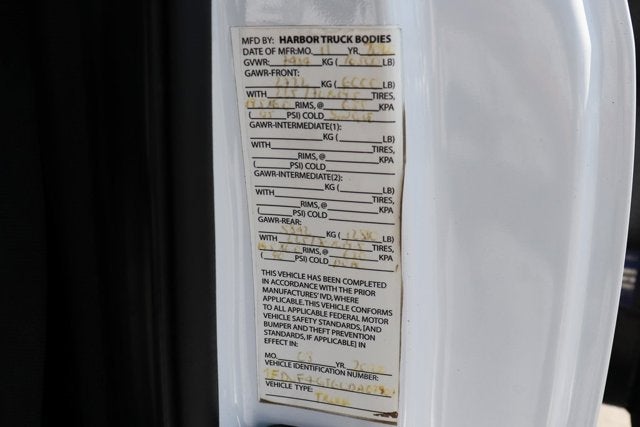 MFD BY: HARBOR TRUCK BODIES
DATE OF MFR: MO. 11 YR.
GVWR: KG ( LB)
GAWR-FRONT:
KG ( 6000 LB)
WITH TIRES,
RIMS, @ KPA
( PSI) COLD
GAWR-INTERMEDIATE(1):
KG ( LB)
WITH TIRES,
RIMS, @ KPA
( PSI) COLD
GAWR-INTERMEDIATE(2):
KG ( LB)
WITH TIRES,
RIMS, @ KPA
( PSI) COLD
GAWR-REAR:
KG ( LB)
WITH TIRES,
RIMS, @ KPA
( PSI) COLD
THIS VEHICLE HAS BEEN COMPLETED
IN ACCORDANCE WITH THE PRIOR
MANUFACTURES' IVD, WHERE
APPLICABLE. THIS VEHICLE CONFORMS
TO ALL APPLICABLE FEDERAL MOTOR
VEHICLE SAFETY STANDARDS, [AND
BUMPER AND THEFT PREVENTION
STANDARDS, IF APPLICABLE] IN
EFFECT IN:
MO. 08 YR.
VEHICLE IDENTIFICATION NUMBER:
VEHICLE TYPE:
TRUCK